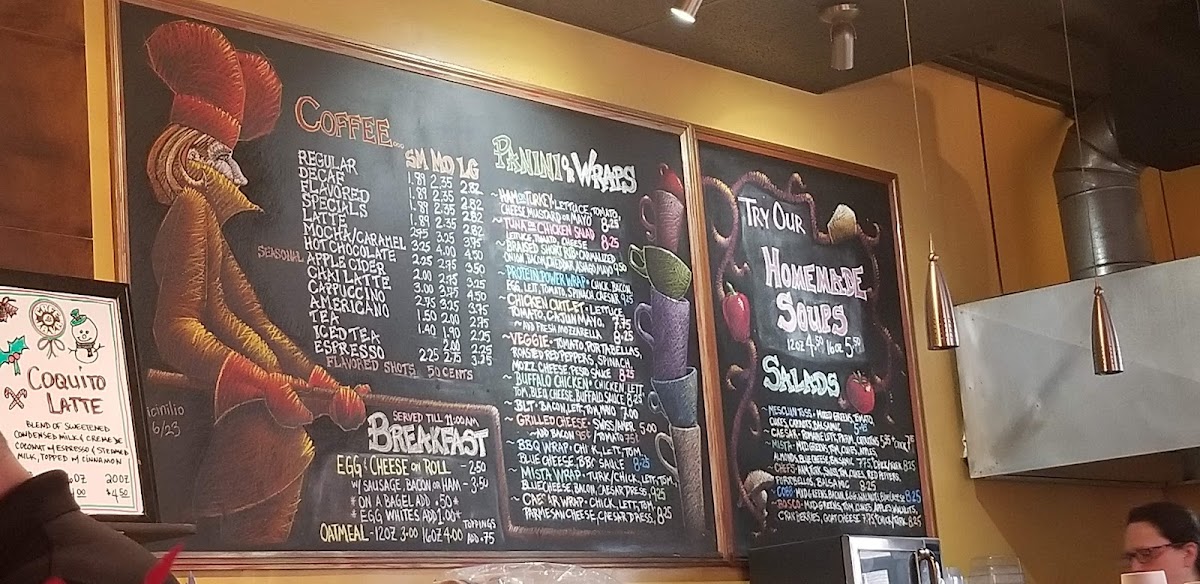 COFFEE...
SM MD LG
REGULAR 1.89 2.35 2.82
DECAF 1.89 2.35 2.82
FLAVORED 1.89 2.35 2.82
SPECIALS 1.89 2.35 2.82
LATTE
MOCHA/CARAMEL
HOT CHOCOLATE
SEASONAL APPLE CIDER
CHAI LATTE
CAPPUCCINO
AMERICANO
TEA
ICED TEA
ESPRESSO 2.25 2.75 3.25
FLAVORED SHOTS 50 CENTS
SERVED TILL 11:00AM
BREAKFAST
EGG & CHEESE ON ROLL - 2.50
W/ SAUSAGE, BACON OR HAM - 3.50
* ON A BAGEL ADD .50 *
* EGG WHITES ADD 1.00 *
OATMEAL - 12OZ 3.00 16OZ 4.00 TOPPINGS ADD .75
PANINI & WRAPS
~ HAM OR TURKEY - LETTUCE, TOMATO,
CHEESE, MUSTARD OR MAYO 8.25
~ TUNA OR CHICKEN SALAD
LETTUCE, TOMATO, CHEESE 8.25
~ BRAISED SHORT RIB - CARMALIZED
ONION, BACON, CHEDDAR, MAYO 9.50
~ PROTEIN POWER WRAP - CHICK, BACON,
EGG, LETT, TOMATO, SPINACH, CAESAR 9.25
~ CHICKEN CUTLET - LETTUCE,
TOMATO, CAJUN MAYO. 7.75
~ AND FRESH MOZZARELLA 8.25
~ VEGGIE - TOMATO, PORTABELLAS,
ROASTED RED PEPPERS, SPINACH,
MOZZ CHEESE, PESTO SAUCE 8.25
~ BUFFALO CHICKEN - CHICKEN, LETT,
TOM, BLEU CHEESE, BUFFALO SAUCE 8.25
~ BLT - BACON, LETT, TOM, MAYO 7.00
~ GRILLED CHEESE - SWISS/AMER. 5.00
~ AND BACON 95¢ / TOMATO 75¢
~ BBQ WRAP - CHICK, LETT, TOM,
BLUE CHEESE, BBQ SAUCE 8.25
~ MISTA WRAP - TURK/CHICK, LETT, TOM,
BLUE CHEESE, BACON, CAESAR DRESS, 9.25
~ CAESAR WRAP - CHICK, LETT, TOM,
PARMESAN CHEESE, CAESAR DRESS, 8.25
TRY OUR
HOMEMADE
SOUPS
12OZ 4.50 16OZ 5.50
SALADS
~ MESCLUN TOSS - MIXED GREENS, TOMATO,
CUKES, CARROTS, BALSAMIC
~ CAESAR - ROMAINE LETT, PARM, CROUTONS
~ MISTA - MIXED GREENS, TOM, CUKES, APPLES,
ALMONDS, BLUE CHEESE, BALSAMIC
~ CHEFS - HAM, TURK, SWISS, TOM, CUKES, RED PEPPERS,
PORTABELLOS, BALSAMIC 8.25
~ COBB - MIXED GREENS, BACON, EGG, WALNUTS, BLUE CHEESE 8.25
~ BOSCO - MIXED GREENS, TOM, CUKES, APPLES, WALNUTS,
CRANBERRIES, GOAT CHEESE 7.75
COQUITO
LATTE
BLEND OF SWEETENED
CONDENSED MILK & CREME DE
COCONUT W/ ESPRESSO & STEAMED
MILK, TOPPED W/ CINNAMON
20OZ
$4.50
6/23